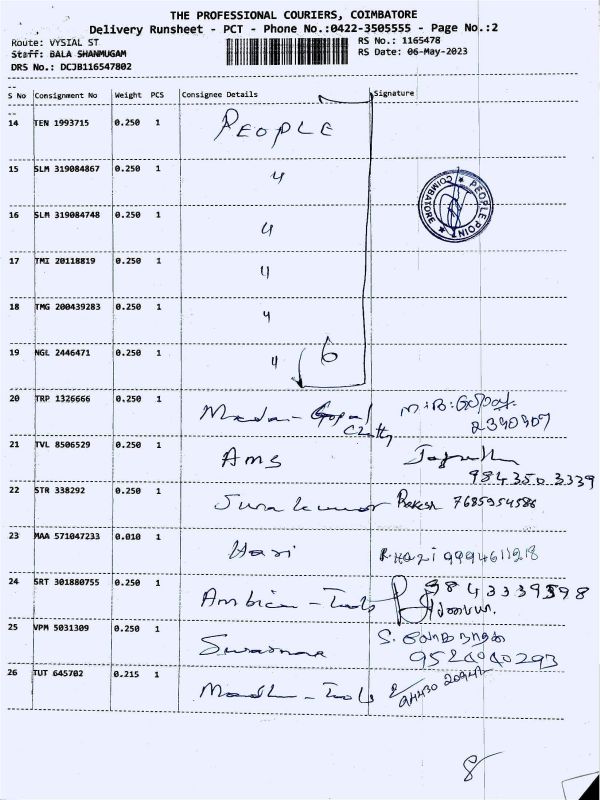 THE PROFESSIONAL COURIERS, COIMBATORE
Delivery Runsheet - PCT - Phone No.:0422-3505555 - Page No.:2
Route: VYSIAL ST RS No.: 1165478
Staff: BALA SHANMUGAM RS Date: 06-May-2023
DRS No.: DCJB116547802
S No Consignment No Weight PCS Consignee Details Signature
14 TEN 1993715 0.250 1 PEOPLE
15 SLM 319084867 0.250 1 4
PEOPLE POINT ★ COIMBATORE ★
16 SLM 319084748 0.250 1 4
17 TMI 20118819 0.250 1 4
18 TMG 200439283 0.250 1 4
19 NGL 2446471 0.250 1 4 6
20 TRP 1326666 0.250 1 Madan - Gopal Chetty M.B. Gopal
2390907
21 TVL 8506529 0.250 1 AMS
984350 3339
22 STR 338292 0.250 1 Rakesh 7685954586
23 MAA 571047233 0.010 1 Hari R.Hari 9994611218
24 SRT 301880755 0.250 1 Ambica - Tools 9843339598
25 VPM 5031309 0.250 1
9524040293
26 TUT 645702 0.215 1 - Tools
8